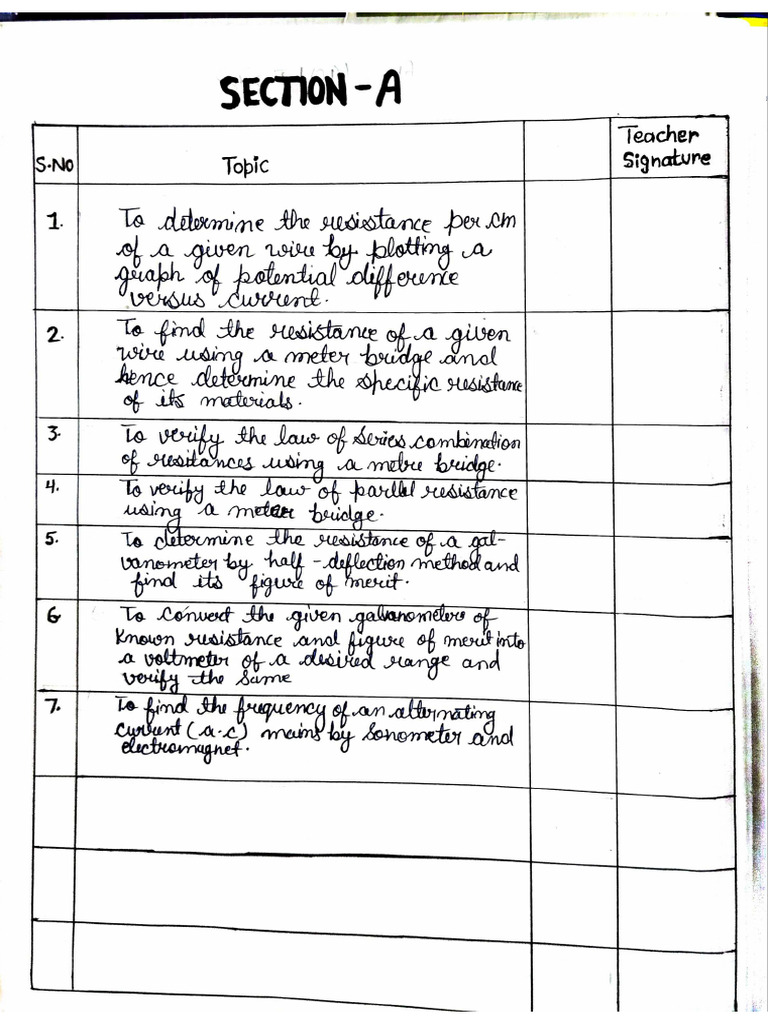 SECTION-A
S.No Topic Teacher Signature
1. To determine the resistance per cm
of a given wire by plotting a
graph of potential difference
versus current.
2. To find the resistance of a given
wire using a meter bridge and
hence determine the specific resistance
of its materials.
3. To verify the law of series combination
of resitances using a metre bridge.
4. To verify the law of parllel resistance
using a meter bridge.
5. To determine the resistance of a gal-
vanometer by half-deflection method and
find its figure of merit.
6 To convert the given galvanometers of
known resistance and figure of merit into
a voltmeter of a desired range and
verify the same
7. To find the frequency of an alternating
current (a.c) mains by sonometer and
electromagnet.